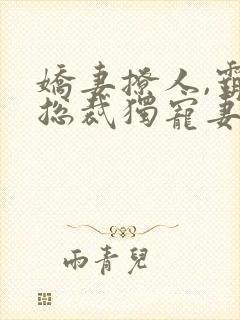 嬌妻撩人,霸
總裁獨寵妻
雨青兒